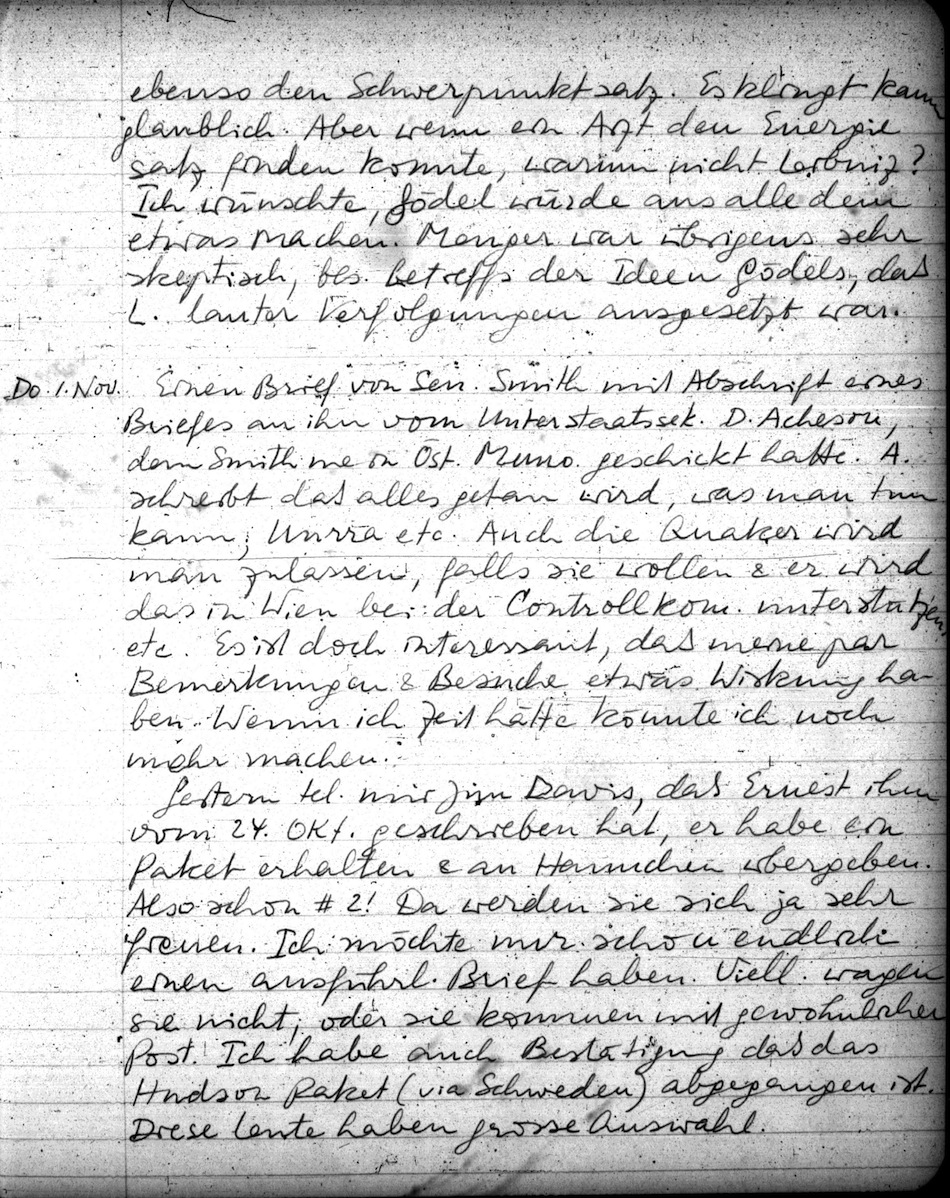 ebenso den Schwerpunktsatz. Es klingt kaum
glaublich. Aber wenn ein Arzt den Energie
satz finden konnte, warum nicht Leibniz?
Ich wünschte, Gödel würde aus alle dem
etwas machen. Menger war übrigens sehr
skeptisch, bes. betreffs der Ideen Gödels, das
L. lauter Verfolgungen ausgesetzt war.
Do. 1. Nov. Einen Brief von Sen. Smith mit Abschrift eines
Briefes an ihn vom Unterstaatssek. D. Acheson,
dem Smith mein Öst. Memo. geschickt hatte. A.
schreibt das alles getan wird, was man tun
kann; Unrra etc. Auch die Quaker wird
man zulassen, falls sie wollen & er wird
das in Wien bei der Controllkom. unterstützen
etc. Es ist doch interessant, das meine par
Bemerkungen & Besuche etwas Wirkung ha-
ben. Wenn ich Zeit hätte könnte ich noch
mehr machen.
Gestern tel. mir Jim Davis, das Ernest ihm
vom 24. Okt. geschrieben hat, er habe ein
Paket erhalten & an Hannchen übergeben.
Also schon # 2! Da werden sie sich ja sehr
freuen. Ich möchte nur schon endlich
einen ausführl. Brief haben. Viell. wagen
sie nicht, oder sie kommen mit gewöhnlicher
Post. Ich habe auch Bestätigung das das
Hudson Paket (via Schweden) abgegangen ist.
Diese Leute haben grosse Auswahl.